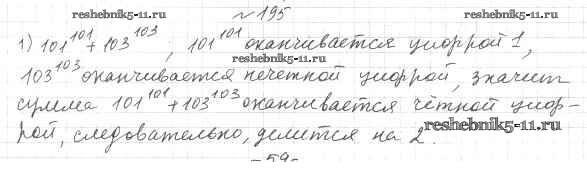 reshebnik5-11.ru № 195 reshebnik5-11.ru
1) 101^101 + 103^103 ; 101^101 оканчивается цифрой 1,
reshebnik5-11.ru
103^103 оканчивается нечетной цифрой, значит
сумма 101^101 + 103^103 оканчивается чётной циф-
рой, следовательно, делится на 2.
reshebnik5-11.ru
- 59 -